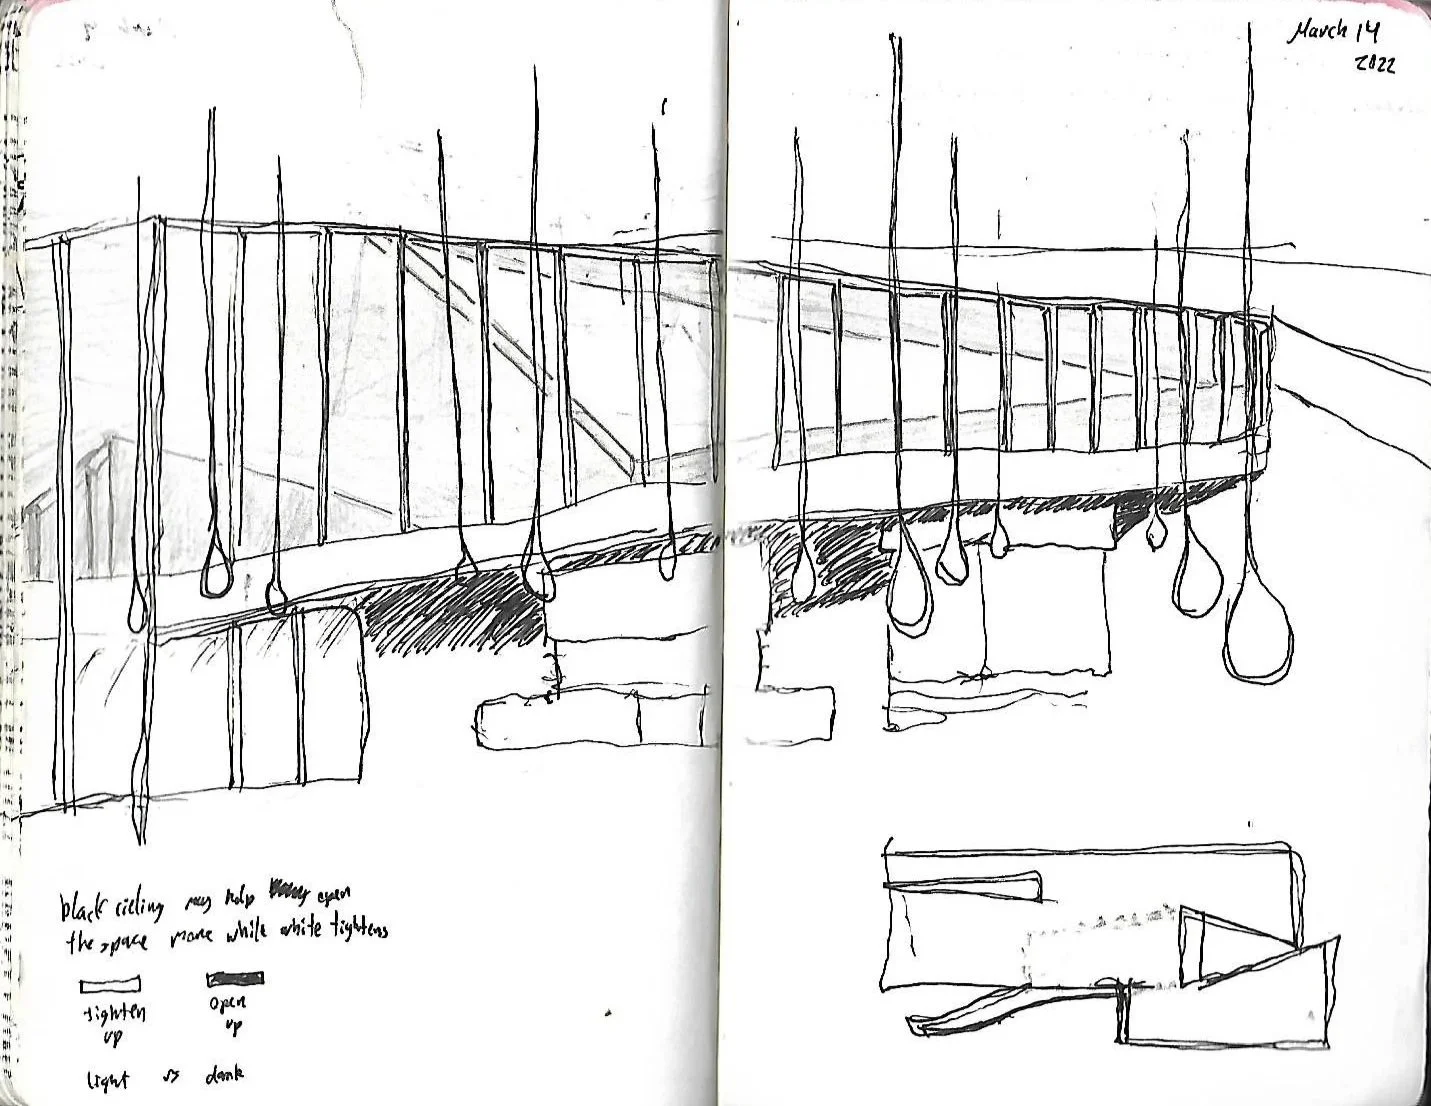 March 14
2022
black cieling may help open
the space more while white tightens
tighten
up
open
up
light vs dark